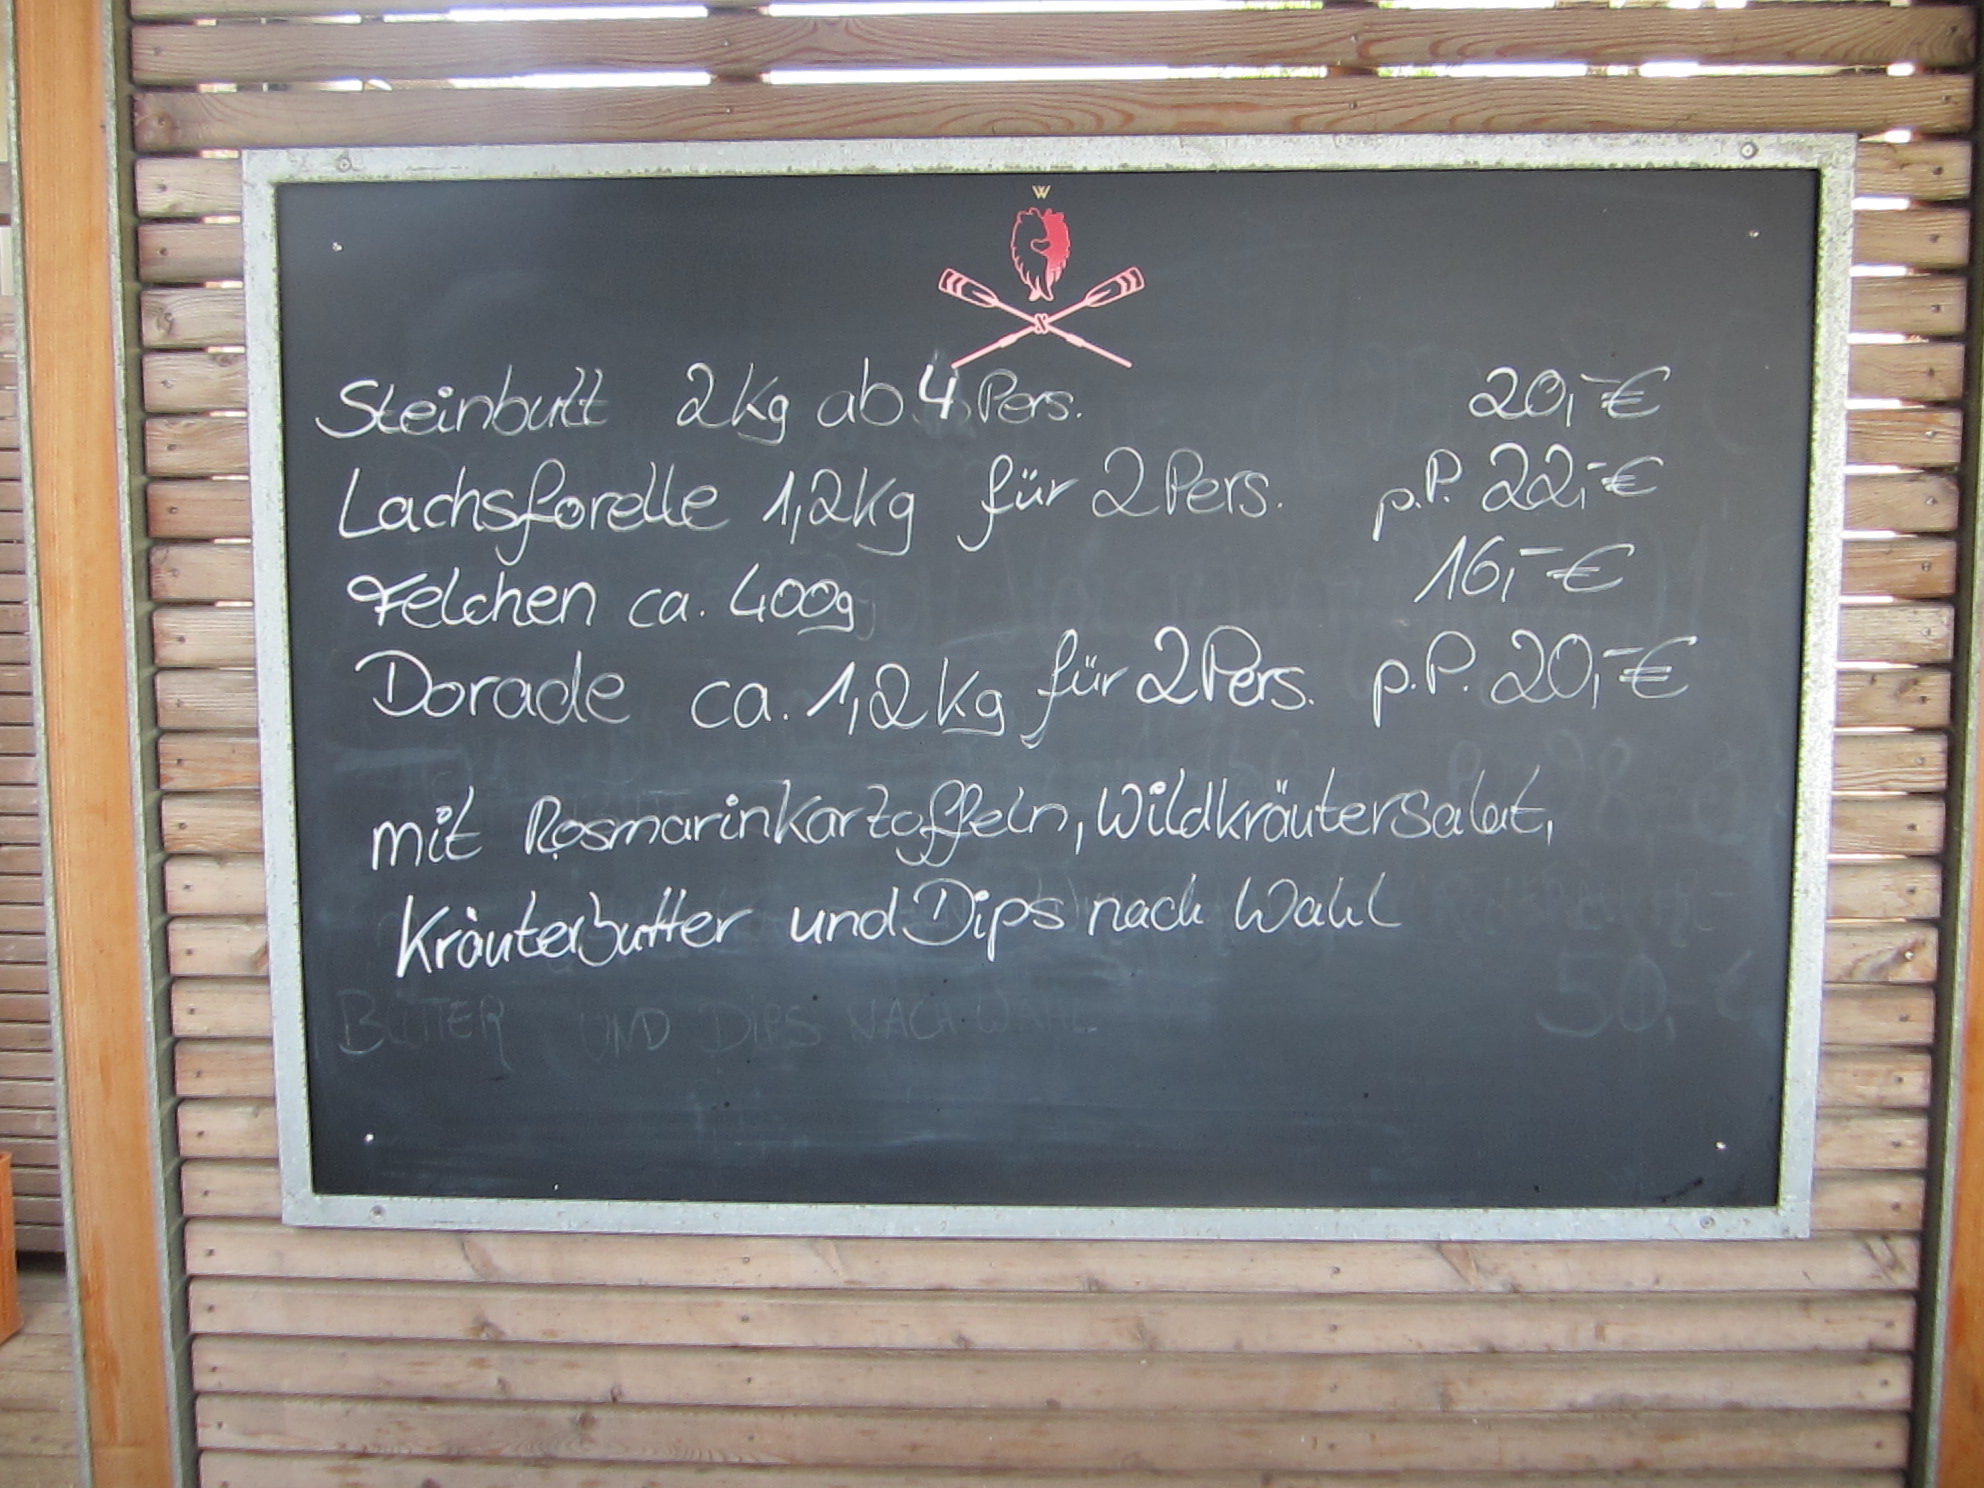 W
Steinbutt 2kg ab 4 Pers. 20,-€
Lachsforelle 1,2kg für 2 Pers. p.P. 22,-€
Felchen ca. 400g 16,-€
Dorade ca. 1,2kg für 2 Pers. p.P. 20,-€
mit Rosmarinkartoffeln, Wildkräutersalat,
Kräuterbutter und Dips nach Wahl
50,-€
BUTTER UND DIPS NACH WAHL